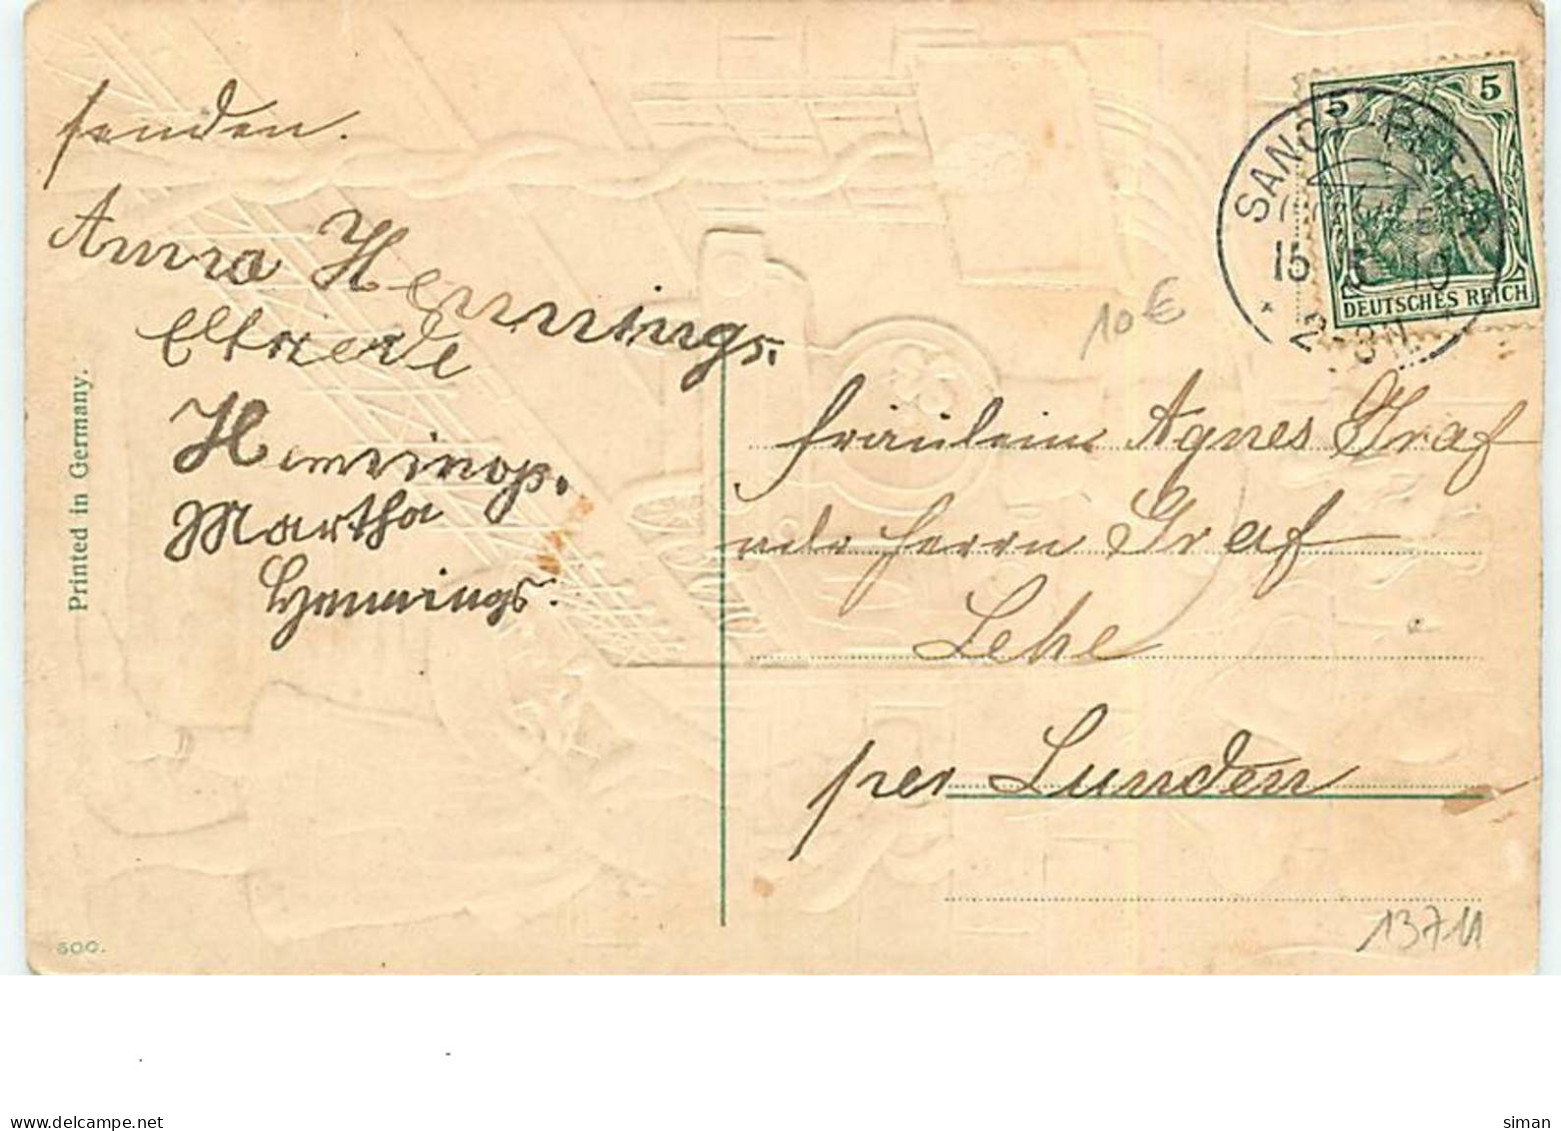 senden.
Anna Hennings.
Elfriede
Hennings.
Martha
Hennings.
Printed in Germany.
500.
10€
5 5
DEUTSCHES REICH
SANCT PETER
15 3 10
Fräulein Agnes Graf
adr Herrn Graf
Lehe
per Lunden
13711
www.delcampe.net
siman